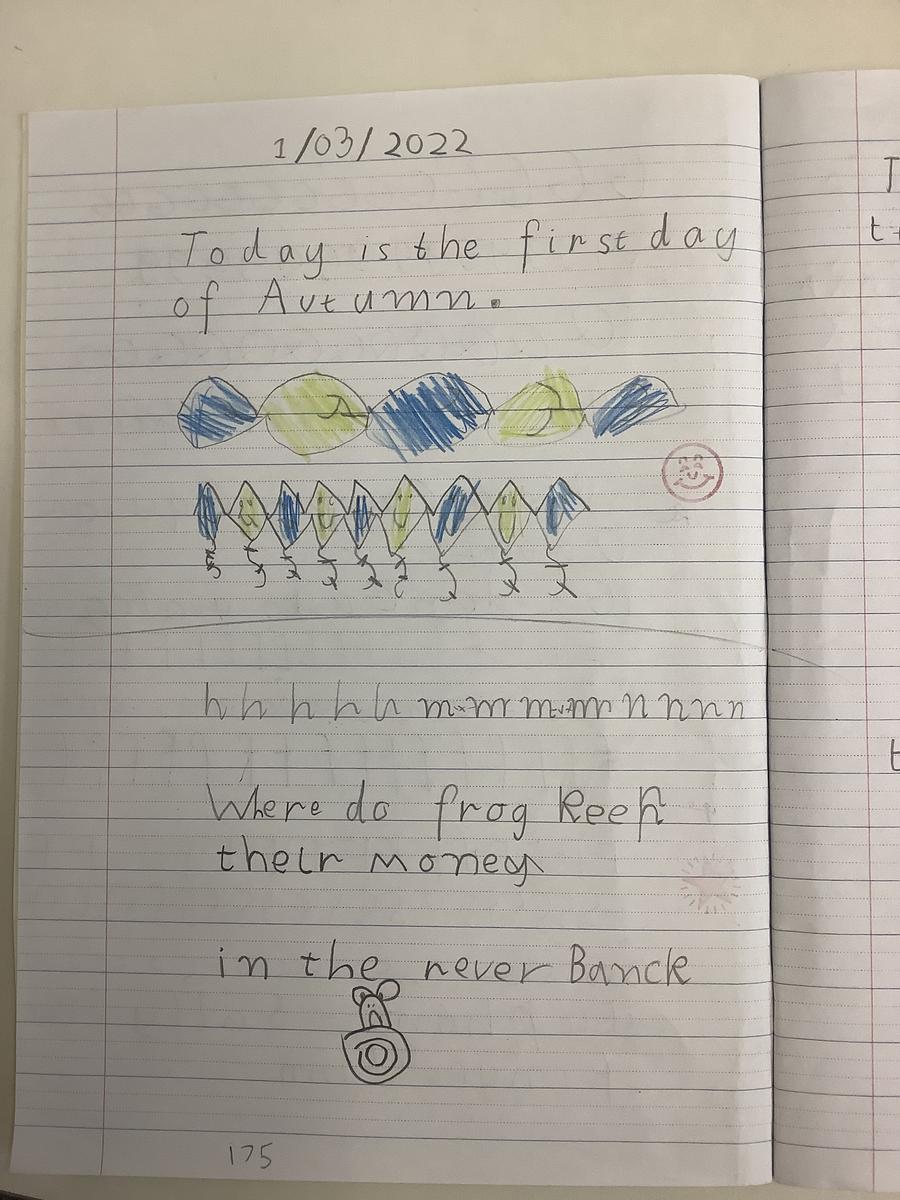 1/03/2022
Today is the first day
of Autumn.
h h h h h m m m m n n n n
Where do frog keep
their money
in the never Banck
175